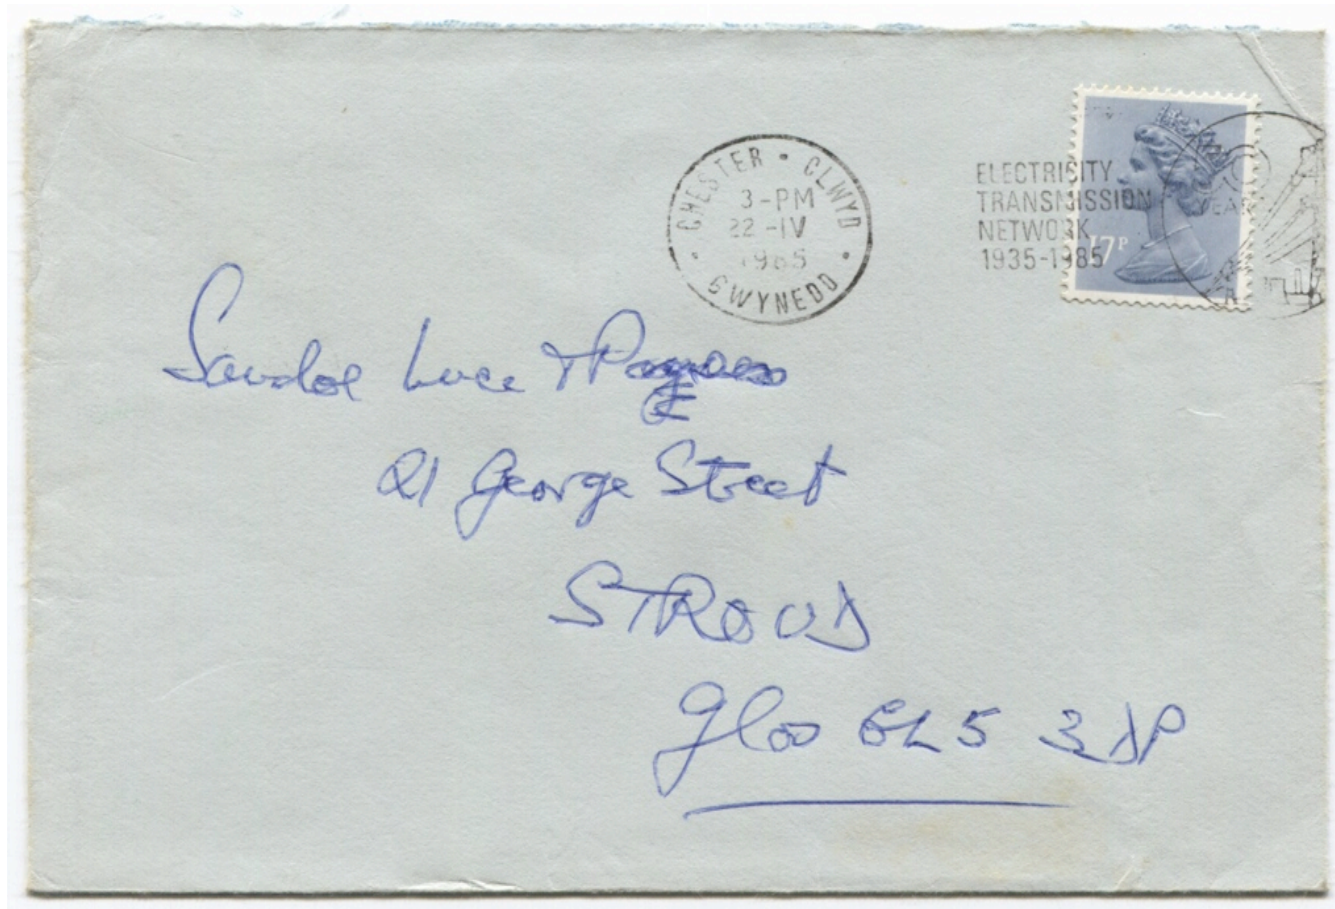 CHESTER · CLWYD
3-PM
22-IV
1985
· GWYNEDD ·
ELECTRICITY
TRANSMISSION
NETWORK
1935-1985
YEARS
17P
Sandoe Luce &
21 George Street
STROUD
Glos GL5 3DP